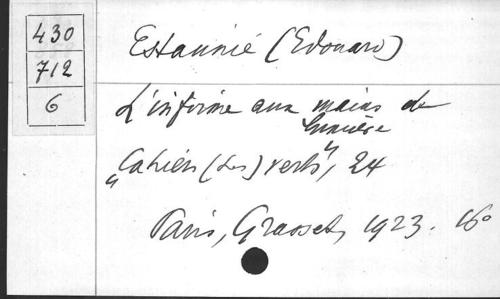 430
712
6
Estaunié (Edouard)
L'infirme aux mains de
lumière
"Cahiers (Les) verts", 24
Paris, Grasset, 1923. 16°